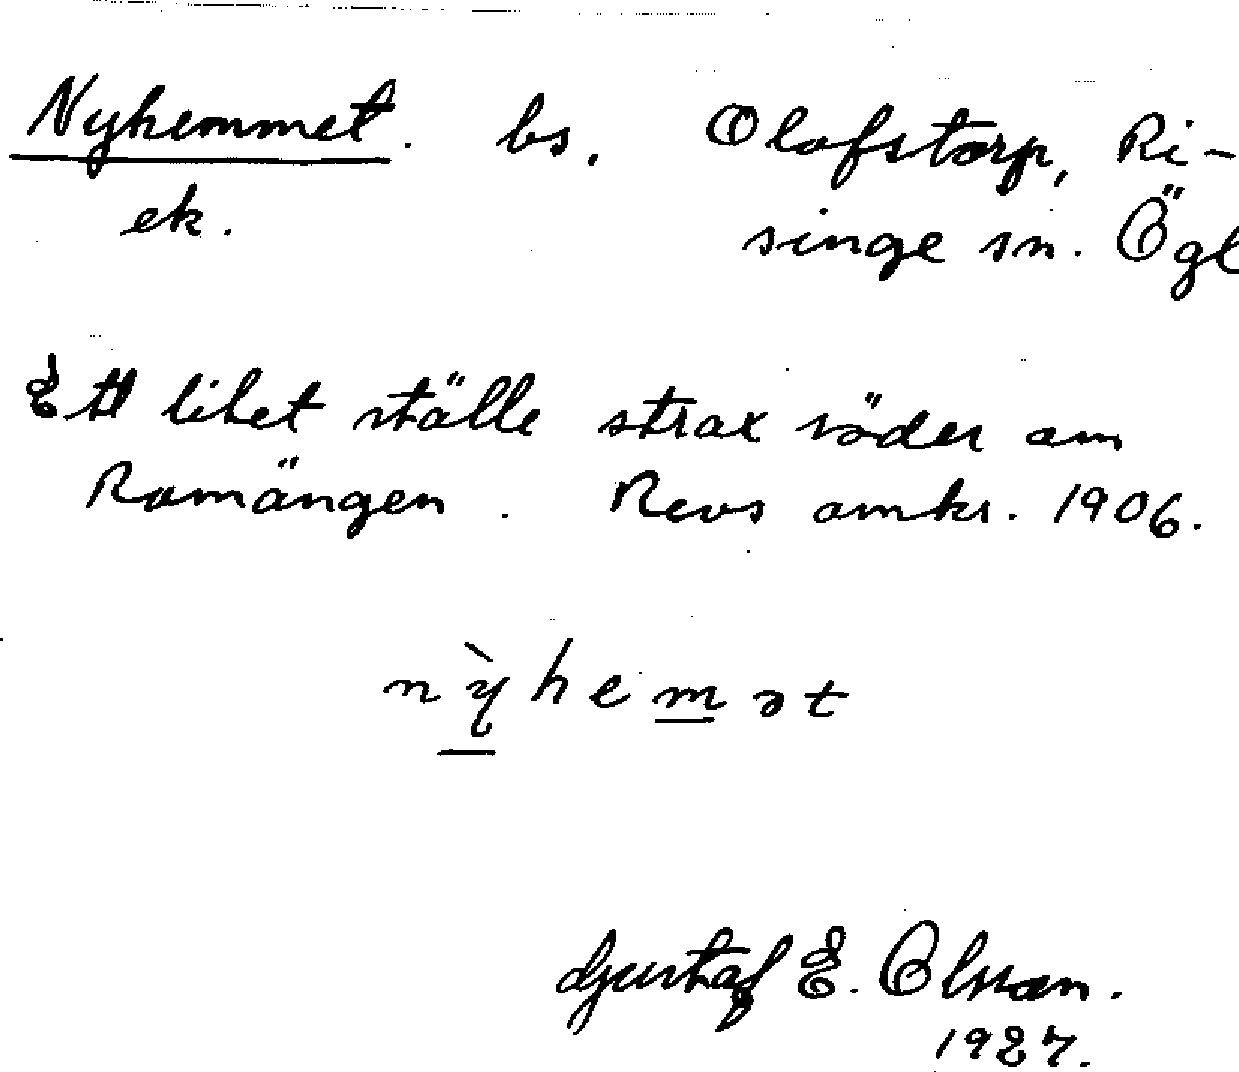 Nyhemmet. bs. Olofstorp, Ri-
ek. singe sn. Ögl
Ett litet ställe strax söder om
Romängen. Revs omkr. 1906.
nỳhemət
Gustaf E. Olsson.
1927.